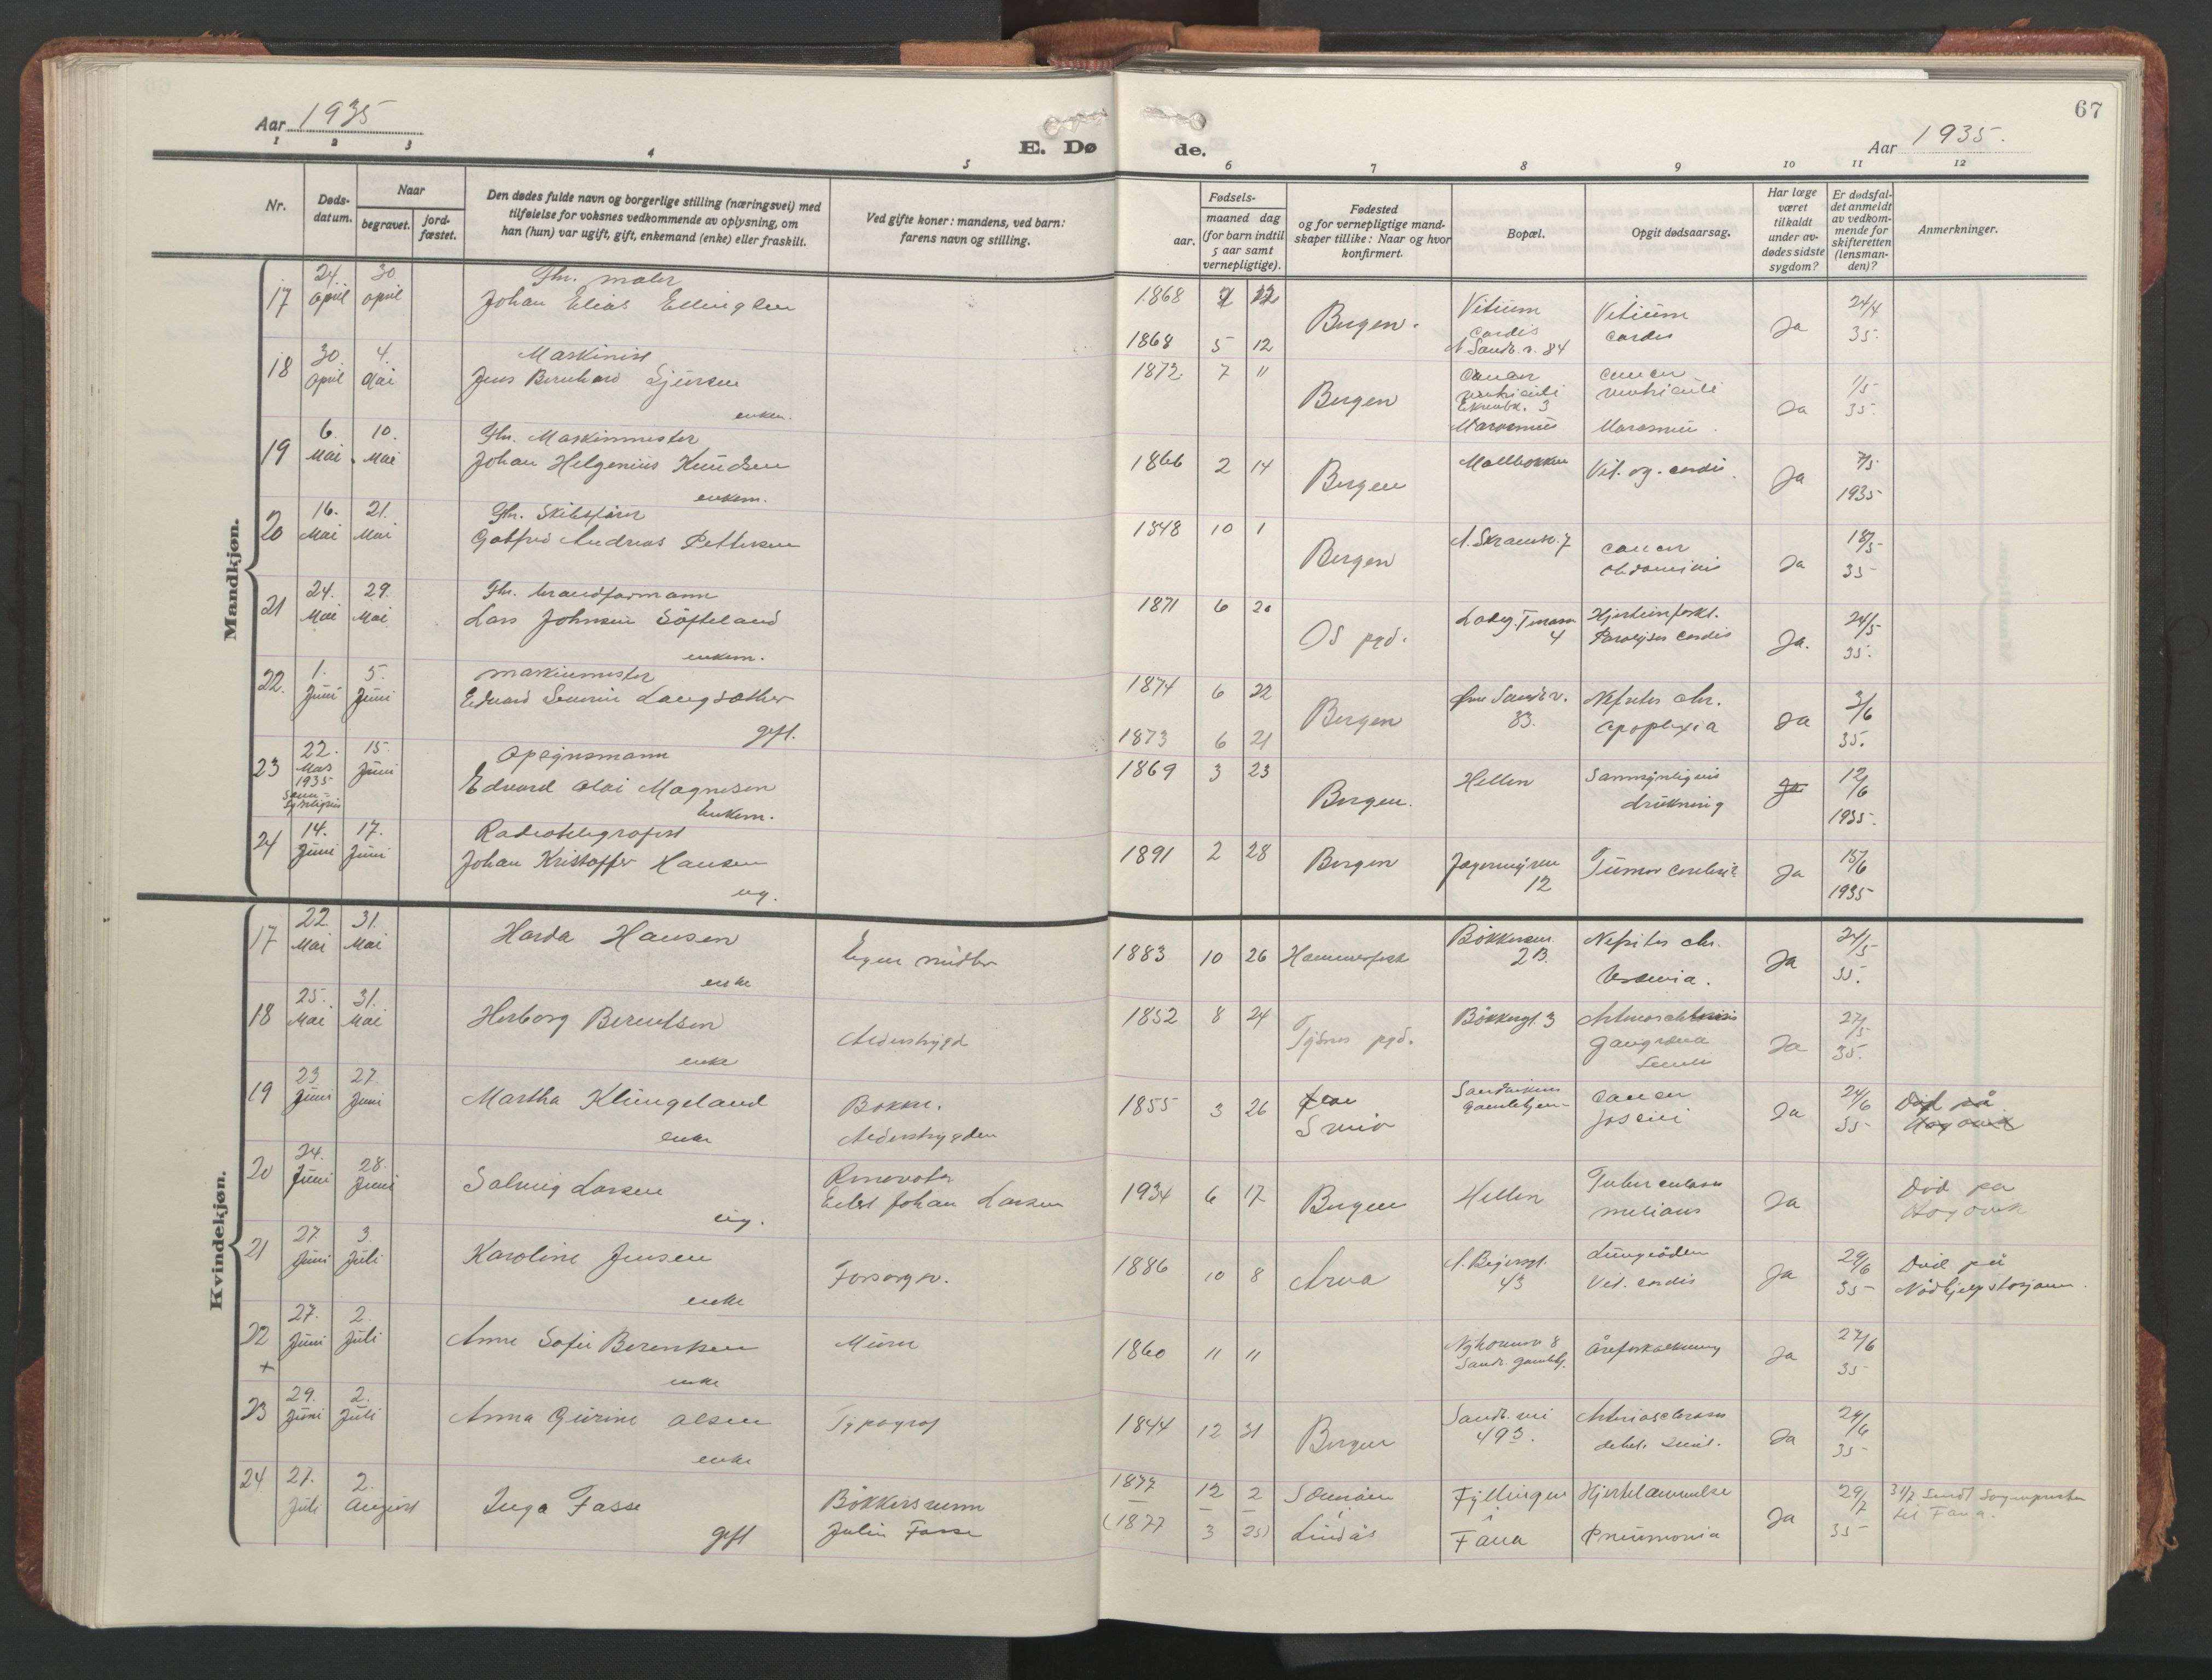 67
Aar 1935
E. Dø
de.
Aar 1935.
1 2 3 4 5 6 7 8 9 10 11 12
Nr.
Døds-
datum.
Naar
begravet.
jord-
fæstet.
Den dødes fulde navn og borgerlige stilling (næringsvei) med
tilføielse for voksnes vedkommende av oplysning, om
han (hun) var ugift, gift, enkemand (enke) eller fraskilt.
Ved gifte koner: mandens, ved barn:
farens navn og stilling.
Fødsels-
aar.
maaned dag
(for barn indtil
5 aar samt
vernepligtige).
Fødested
og for vernepligtige mand-
skaper tillike: Naar og hvor
konfirmert.
Bopæl.
Opgit dødsaarsag.
Har læge
været
tilkaldt
under av-
dødes sidste
sygdom?
Er dødsfal-
det anmeldt
av vedkom-
mende for
skifteretten
(lensman-
den)?
Anmerkninger.
Mandkjøn.
17 24. april 30 april
Fhv. maler
Johan Elias Ellingsen
1868 12
1868 5 12
Bergen.
Vitium
cordis
N. Sandv.v. 84
Vitium
cordis
Ja
24/4
35.
18 30. april 4. Mai
Maskinist
Jens Bernhard Sjursen
enkem.
1872. 7 11
Bergen
Cancer
ventriculi
3
Marasmus
cancer
ventriculi
Marasmus.
Ja
1/5
35.
19 6. Mai. 10. Mai
Fhv. Maskinmester
Johan Helgenius Knudsen
enkem.
1866 2 14
Bergen
Møllbakken
Vit. og. cordis.
Ja
7/5
1935
20 16. Mai 21. Mai
Fhv. Skibsfører
Gotfred Andreas Pettersen
1848 10 1
Bergen
N. Skramv. 7
cancer
abdominis
Ja
18/5
35
21 24. Mai 29. Mai
Fhv. brandformann
Lars Johnsen Søfteland
enkem.
1871 6 20
Os pgd.
4
Hjerteinfarkt.
Paralysis cordis
Ja.
24/5
35.
22. 1. Juni 5. Juni
maskinmester
Edvard Severin Langsæther
gift.
1874 6 22
1873 6 21
Bergen
Øvre Sandv.v.
83.
Nefritis chr.
apoplexia
Ja
3/6
35.
23 22. Mars 1935 sann-
synligvis
15. Juni
opsynsmann
Edvard Olai Magnesen
Enkem.
1869 3 23
Bergen.
Hellen
Sannsynligvis
drukning
Ja
12/6
1935.
24 14. Juni 17. Juni
Radiotelegrafist
Johan Kristoffer Hansen
ug.
1891 2 28
Bergen
Jægermyren
12
Tumor cerebri?
Ja
15/6
1935
Kvindekjøn.
17 22. Mai 31. Mai
Harda Hansen
enke
Egne midler
1883 10 26
Hammerfest
2B.
Nefritis chr.
Uræmia.
Ja
24/5
35.
18 25. Mai 31. Mai
Herborg Berentsen
enke
Alderstrygd
1852 8 24
Tysnes pgd.
Bøkkergt. 3
Arteriosclerosis
gangræna
senilis
Ja
27/5
35.
19 23. Juni 27. Juni
Martha Klungeland
enke
Bøkker.
Alderstrygden
1855 3 26
Sandvikens
gamlehjem
cancer
Ja
24/6
35
Død på
20 24. Juni 28. Juni
Solveig Larsen
ug.
Renovatør
Johan Larsen
1934 6 17
Bergen
Hellen
Tuberculosis
miliaris
Ja
Død på
21 27. Juni 3. Juli
Karoline Jensen
enke
Forsorgsv.
1886 10 8
Arna
43
Lungeødem
Vit. cordis
Ja
29/6
35
Død på
22 27. Juni 2. Juli
+
Anne Sofie Berentsen
enke
Murer
1860 11 11
8
Sandv. gamlehj.
Åreforkalkning
Ja
27/6
35
23 29. Juni 2. Juli
Anna Gurine Olsen
enke
Typograf
1844 12 31
Bergen
Sandv. vei
Arteriosclerosis
debil. senil.
Ja
29/6
35
24 27. Juli 2. August
Inga Fasse
gift
Bøkkersvenn
Julius Fasse
1877 12 2
(1877 3 25)
Lindås
Fyllingen
Fana
Hjertelammelse
Pneumonia
Ja
29/7
35
31/7 Sendt Sognepresten
til Fana.